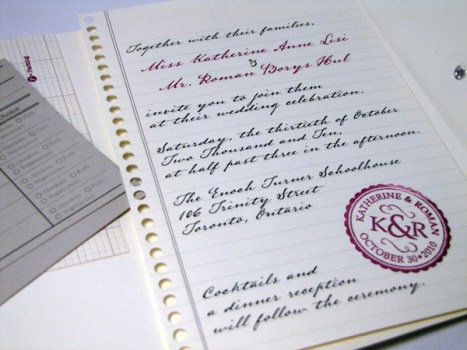 Together with their families,
Miss Katherine Anne Lisi
&
Mr. Roman Borys Hul
invite you to join them
at their wedding celebration,
Saturday, the thirtieth of October
Two Thousand and Ten,
at half past three in the afternoon.
The Enoch Turner Schoolhouse
106 Trinity Street
Toronto, Ontario
KATHERINE & ROMAN
K&R
OCTOBER 30•2010
Cocktails and
a dinner reception
will follow the ceremony.